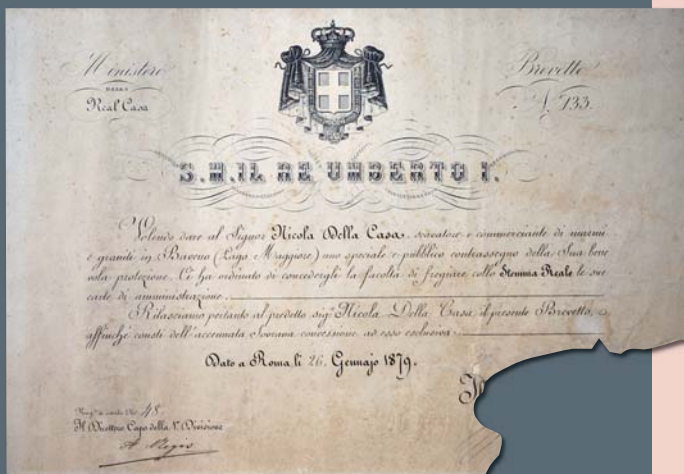 Ministero
DELLA
Real Casa
Brevetto
N. 133.
S. M. IL RE UMBERTO I.
Volendo dare al Signor Nicola Della Casa, scavatore e commerciante di marmi
e graniti in Baveno (Lago Maggiore) uno speciale e pubblico contrassegno della Sua bene
vola protezione, Ci ha ordinato di concedergli la facoltà di fregiare collo Stemma Reale le sue
carte di amministrazione.
Rilasciamo pertanto al predetto sig. Nicola Della Casa il presente Brevetto,
affinchè consti dell'accennata Sovrana concessione ad esso esclusiva.
Dato a Roma li 26 Gennajo 1879.
48
Il Direttore Capo della 1ª Divisione